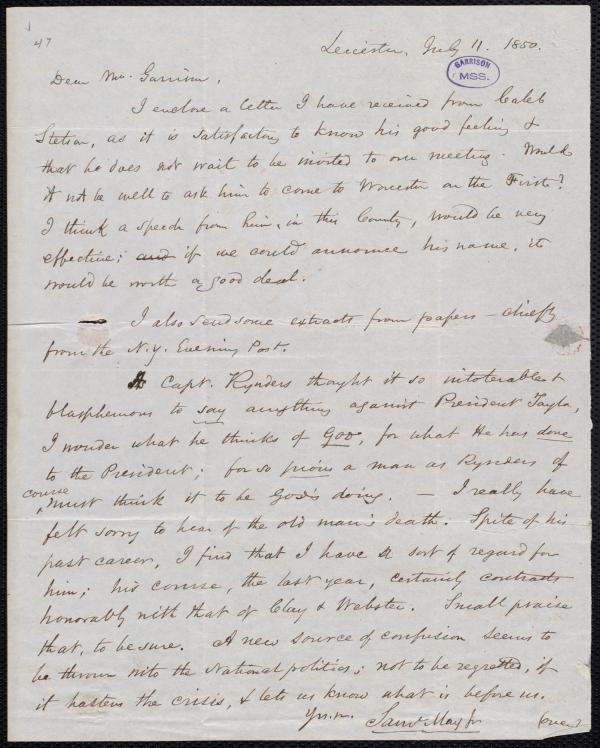 47
Leicester, July 11. 1850.
GARRISON
MSS.
Dear Mr. Garrison,
I enclose a letter I have received from Caleb
Stetson, as it is satisfactory to know his good feeling &
that he does not wait to be invited to our meeting. Would
it not be well to ask him to come to Worcester on the First?
I think a speech from him, in this County, would be very
effective; and if we could announce his name, it
would be worth a good deal.
I also send some extracts from papers - chiefly
from the N.Y. Evening Post.
Capt. Rynders thought it so intolerable &
blasphemous to say anything against President Taylor,
I wonder what he thinks of GOD, for what He has done
to the President; for so pious a man as Rynders of
course
must think it to be God's doing. - I really have
felt sorry to hear of the old man's death. Spite of his
past career, I find that I have a sort of regard for
him; his course, the last year, certainly contrasts
honorably with that of Clay & Webster. Small praise
that, to be sure. A new source of confusion seems to
be thrown into the national politics; not to be regretted, if
it hastens the crisis, & lets us know what is before us.
Yrs. Saml. May Jr
(over)